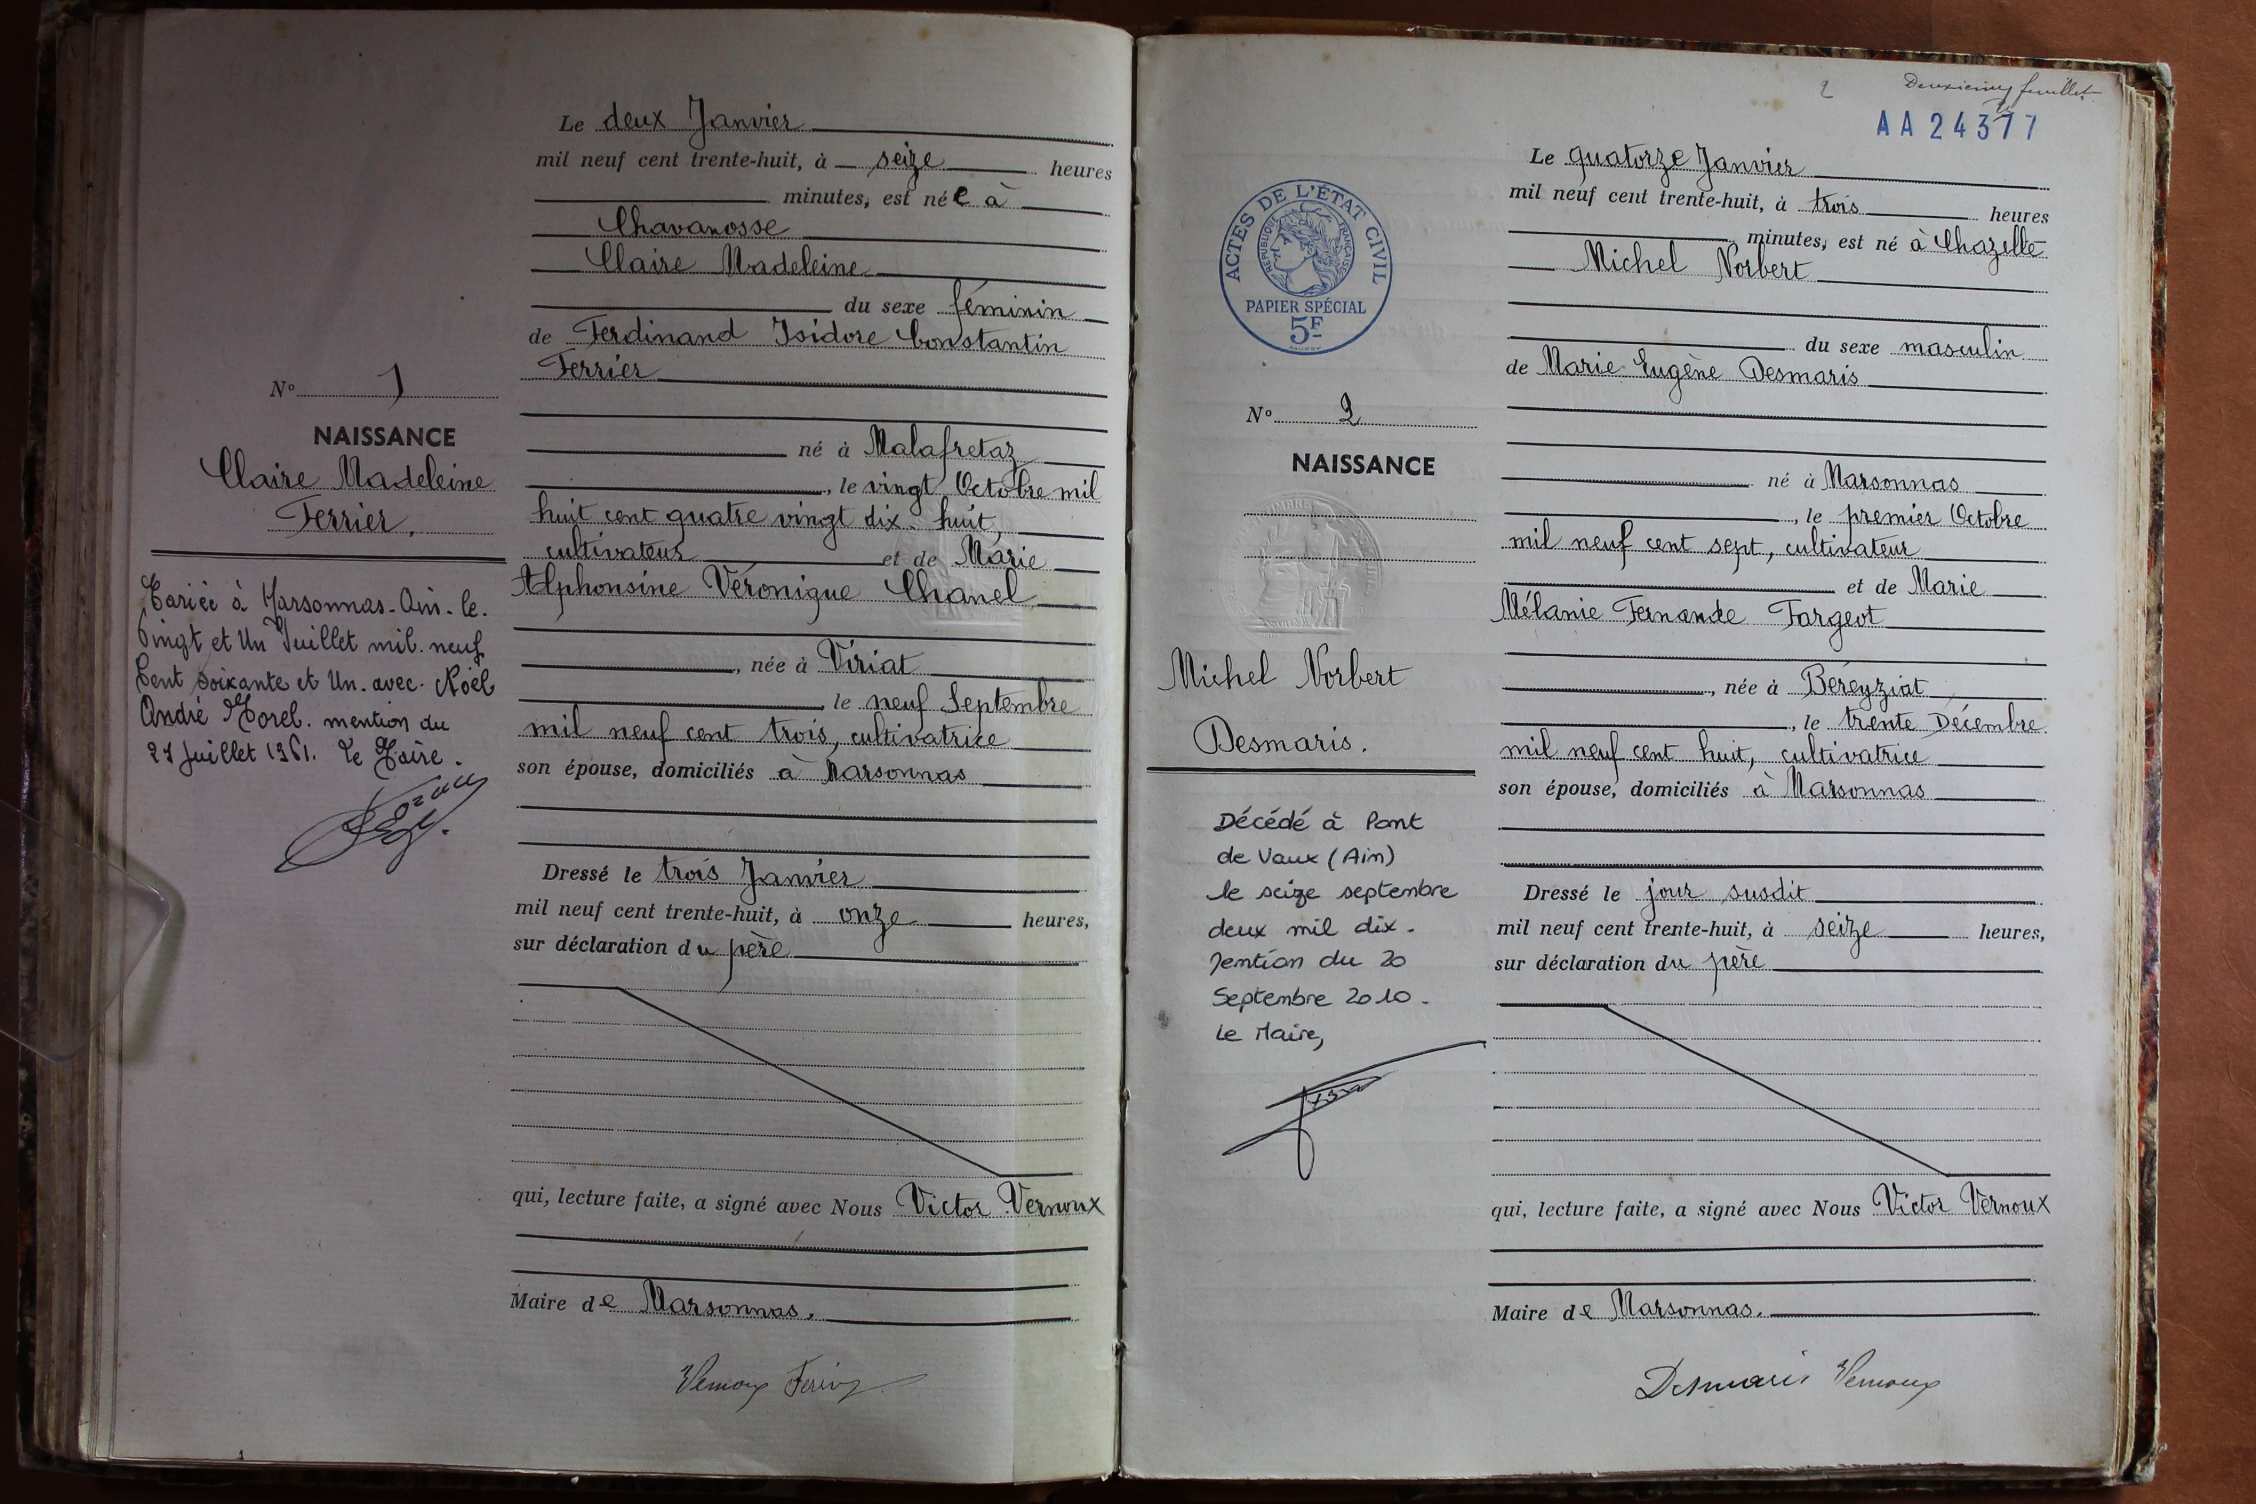 Le deux Janvier
mil neuf cent trente-huit, à seize heures
minutes, est née à
Chavanosse
Claire Madeleine
du sexe féminin
de Ferdinand Isidore Constantin
Ferrier
né à Malafretaz
, le vingt Octobre mil
huit cent quatre vingt dix-huit
cultivateur et de Marie
Alphonsine Véronique Chanel
, née à Viriat
le neuf Septembre
mil neuf cent trois, cultivatrice
son épouse, domiciliés à Marsonnas
Dressé le trois Janvier
mil neuf cent trente-huit, à onze heures,
sur déclaration du père
qui, lecture faite, a signé avec Nous Victor Vernoux
Maire de Marsonnas.
Vernoux Ferrier
N° 1
NAISSANCE
Claire Madeleine
Ferrier.
Mariée à Marsonnas-Ain-le.
Vingt et Un Juillet mil. neuf
Cent soixante et Un. avec. Noël
André Morel. mention du
27 Juillet 1961. Le Maire.
2 Deuxième feuillet
AA24377
ACTES DE L'ÉTAT CIVIL
RÉPUBLIQUE FRANÇAISE
PAPIER SPÉCIAL
5F
Le quatorze Janvier
mil neuf cent trente-huit, à trois heures
minutes, est né à Chazelle
Michel Norbert
du sexe masculin
de Marie Eugène Desmaris
né à Marsonnas
, le premier Octobre
mil neuf cent sept, cultivateur
et de Marie
Mélanie Fernande Fargeot
, née à Béreyziat
, le trente Décembre
mil neuf cent huit, cultivatrice
son épouse, domiciliés à Marsonnas
Dressé le jour susdit
mil neuf cent trente-huit, à seize heures,
sur déclaration du père
qui, lecture faite, a signé avec Nous Victor Vernoux
Maire de Marsonnas.
Desmaris Vernoux
N° 2
NAISSANCE
Michel Norbert
Desmaris.
Décédé à Pont
de Vaux (Ain)
le seize septembre
deux mil dix.
Mention du 20
Septembre 2010.
Le Maire,